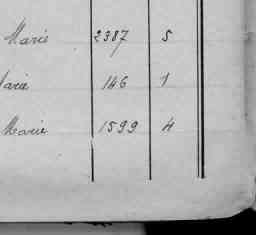 Marie 2387 5
Marie 146 1
Marie 1599 4